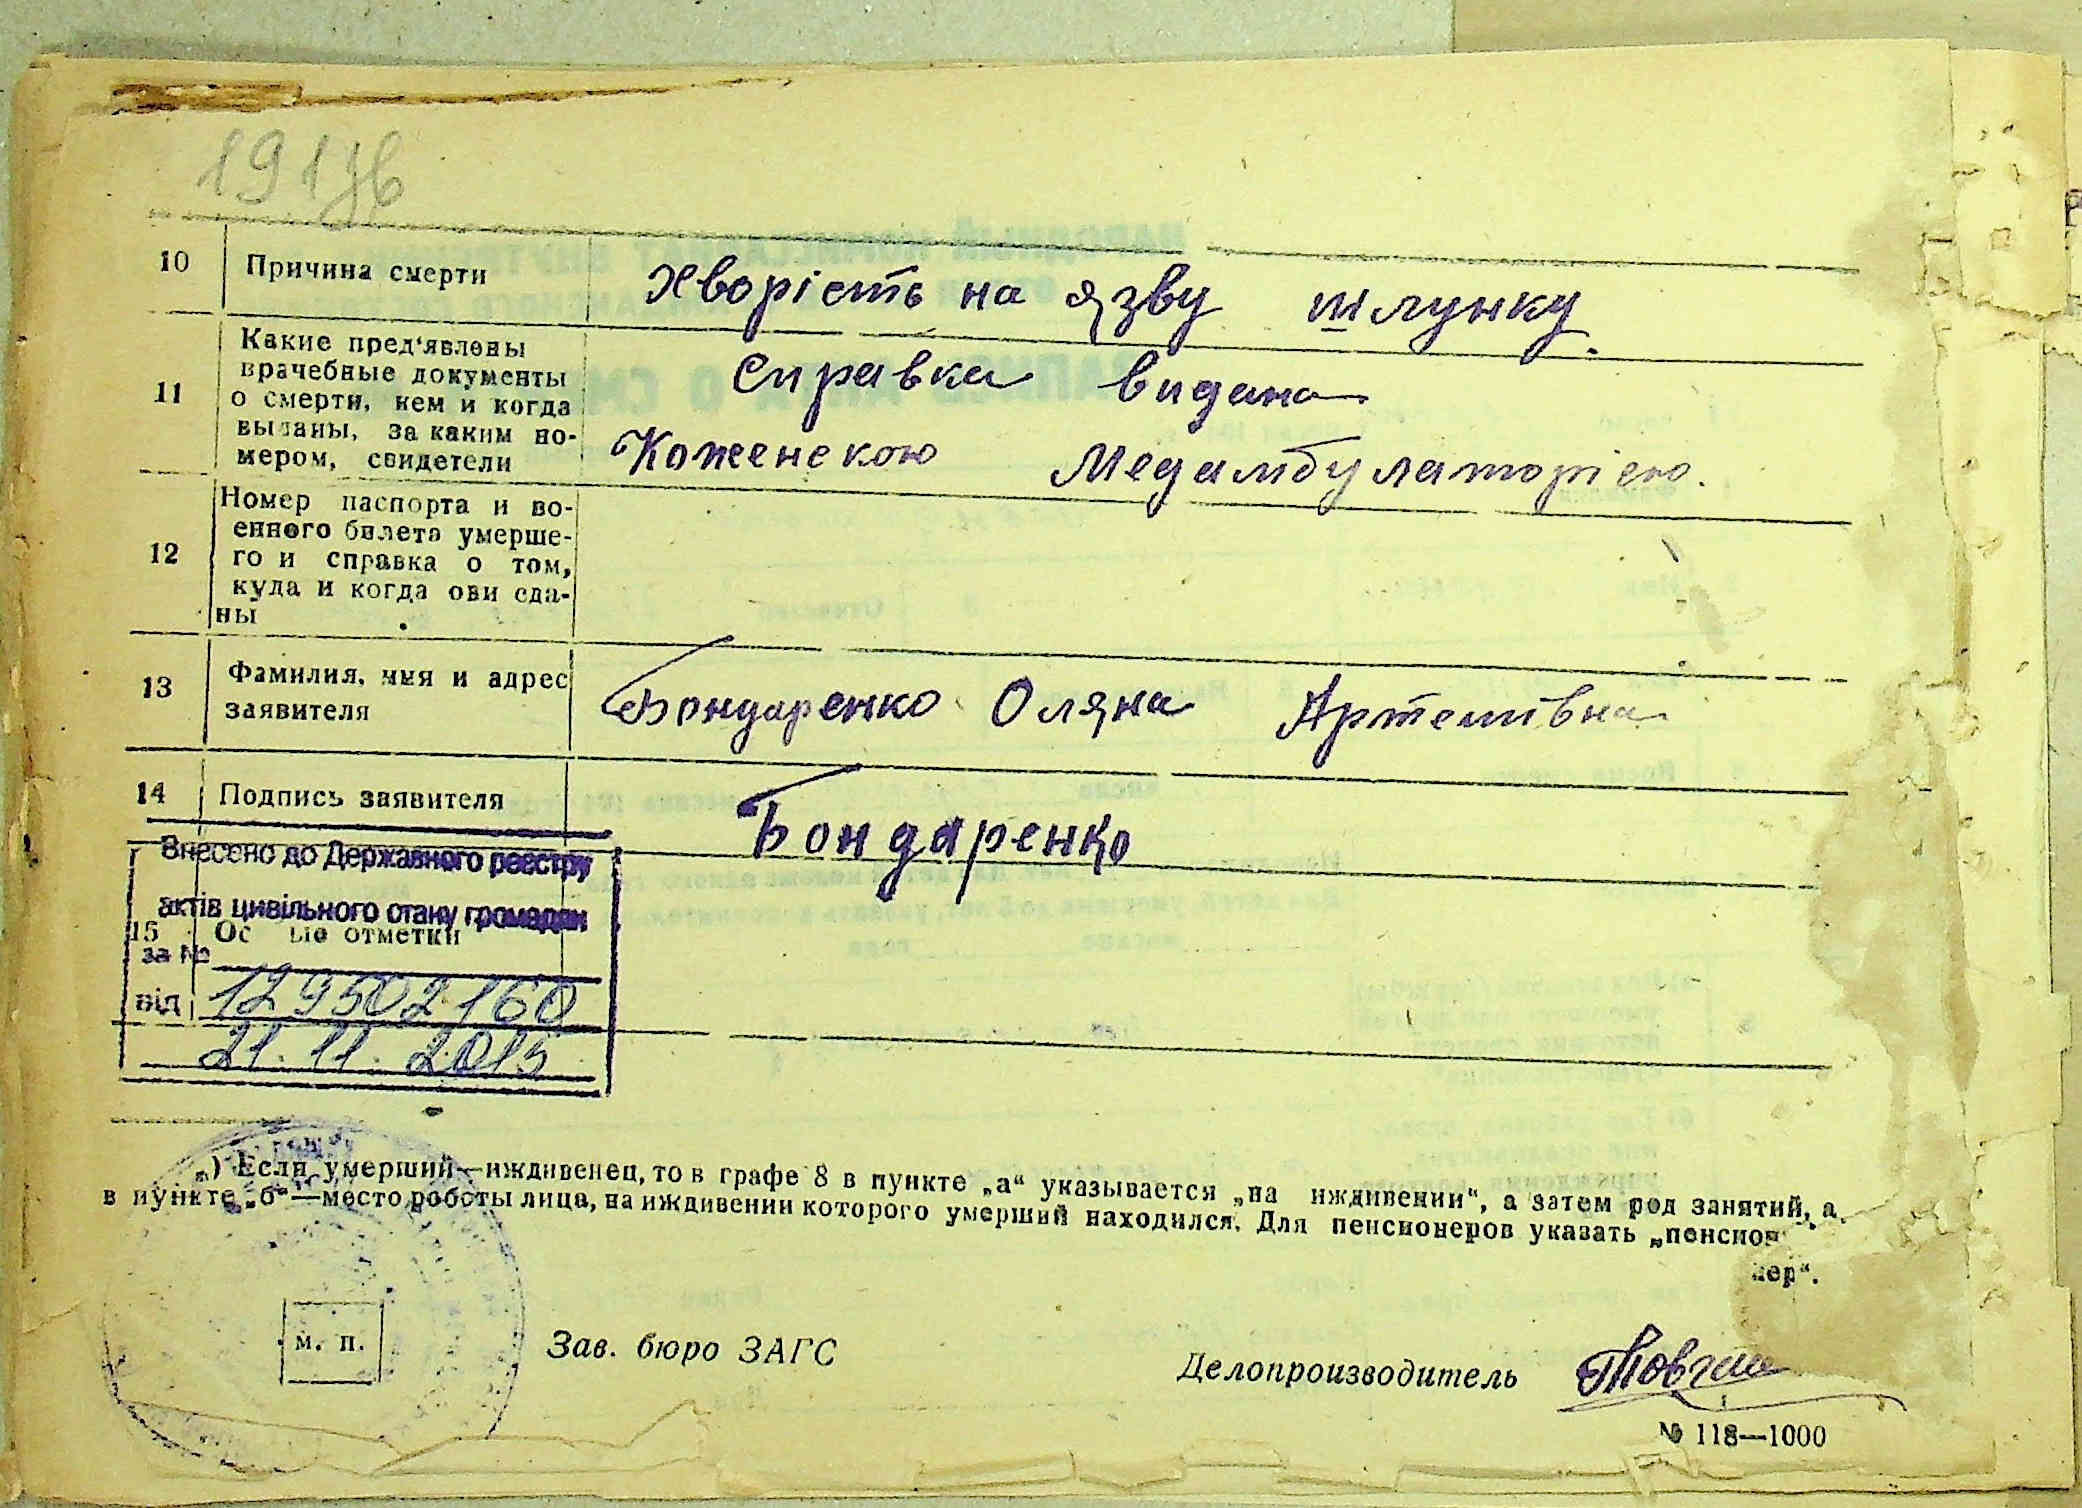 191зв
10 Причина смерти Хворість на язву шлунку.
11 Какие пред'явлены
врачебные документы
о смерти, кем и когда
выданы, за каким но-
мером, свидетели
Справка видана
Коженскою Медамбулаторією.
12 Номер паспорта и во-
енного билета умерше-
го и справка о том,
куда и когда они сда-
ны
13 Фамилия, имя и адрес
заявителя
Бондаренко Оляна Артемівна
14 Подпись заявителя Бондаренко
Внесено до Державного реєстру
актів цивільного стану громадян
15 Ос ые отметки
за №
від 129502160
21.11.2015
„) Если умерший—иждивенец, то в графе 8 в пункте „а“ указывается „на иждивении“, а затем род занятий, а
в пункте „б“—место роботы лица, на иждивении которого умерший находился. Для пенсионеров указать „пенсион
нер“.
м. п.
Зав. бюро ЗАГС
Делопроизводитель
№ 118—1000